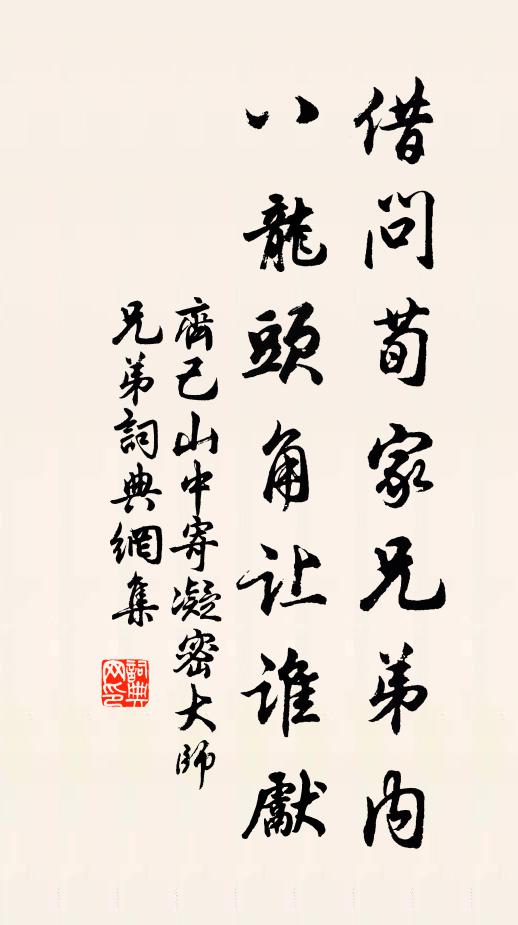 借問荀家兄弟内
八龍頭角让誰獻
齊己山中寄凝密大師
兄弟詞典網集
詞典网印